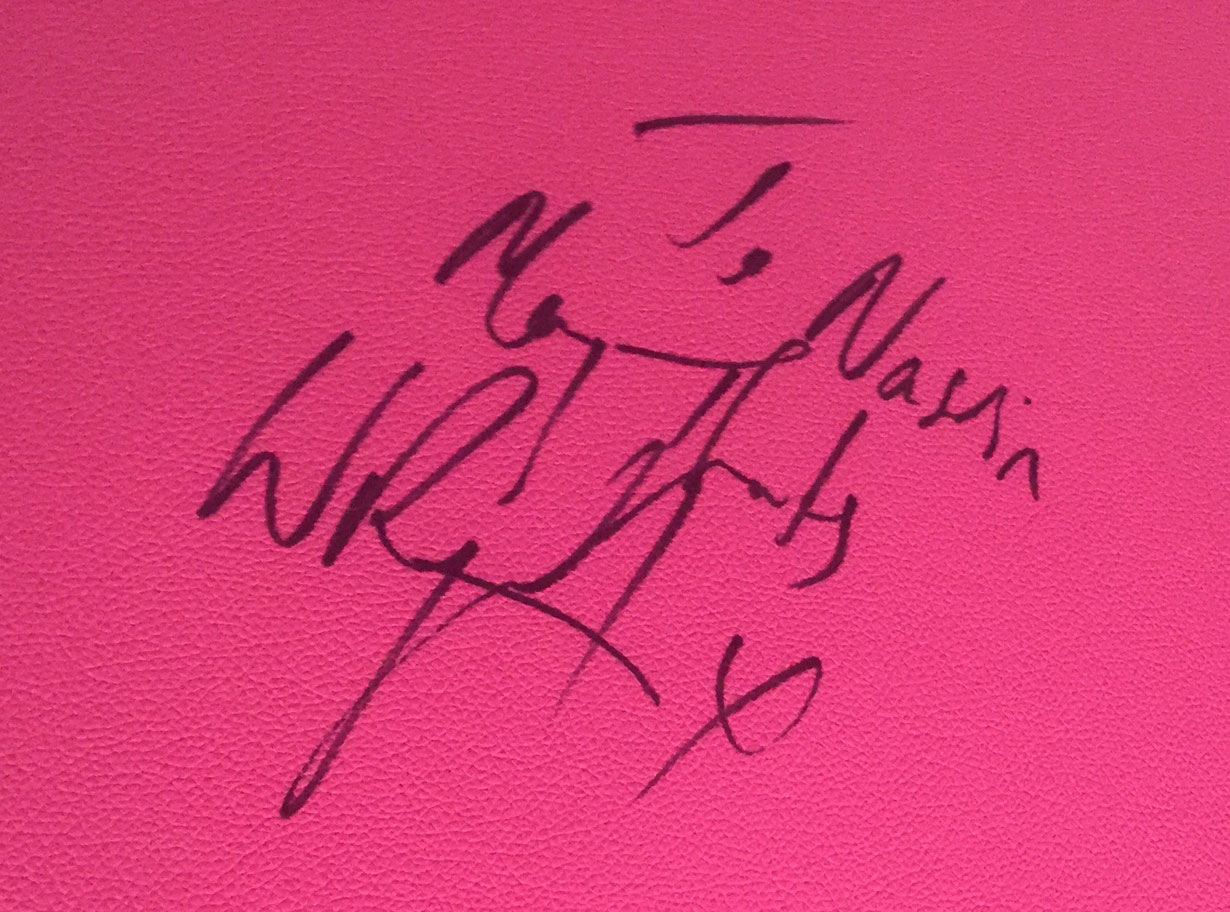 To Nassin
Many Thanks
x